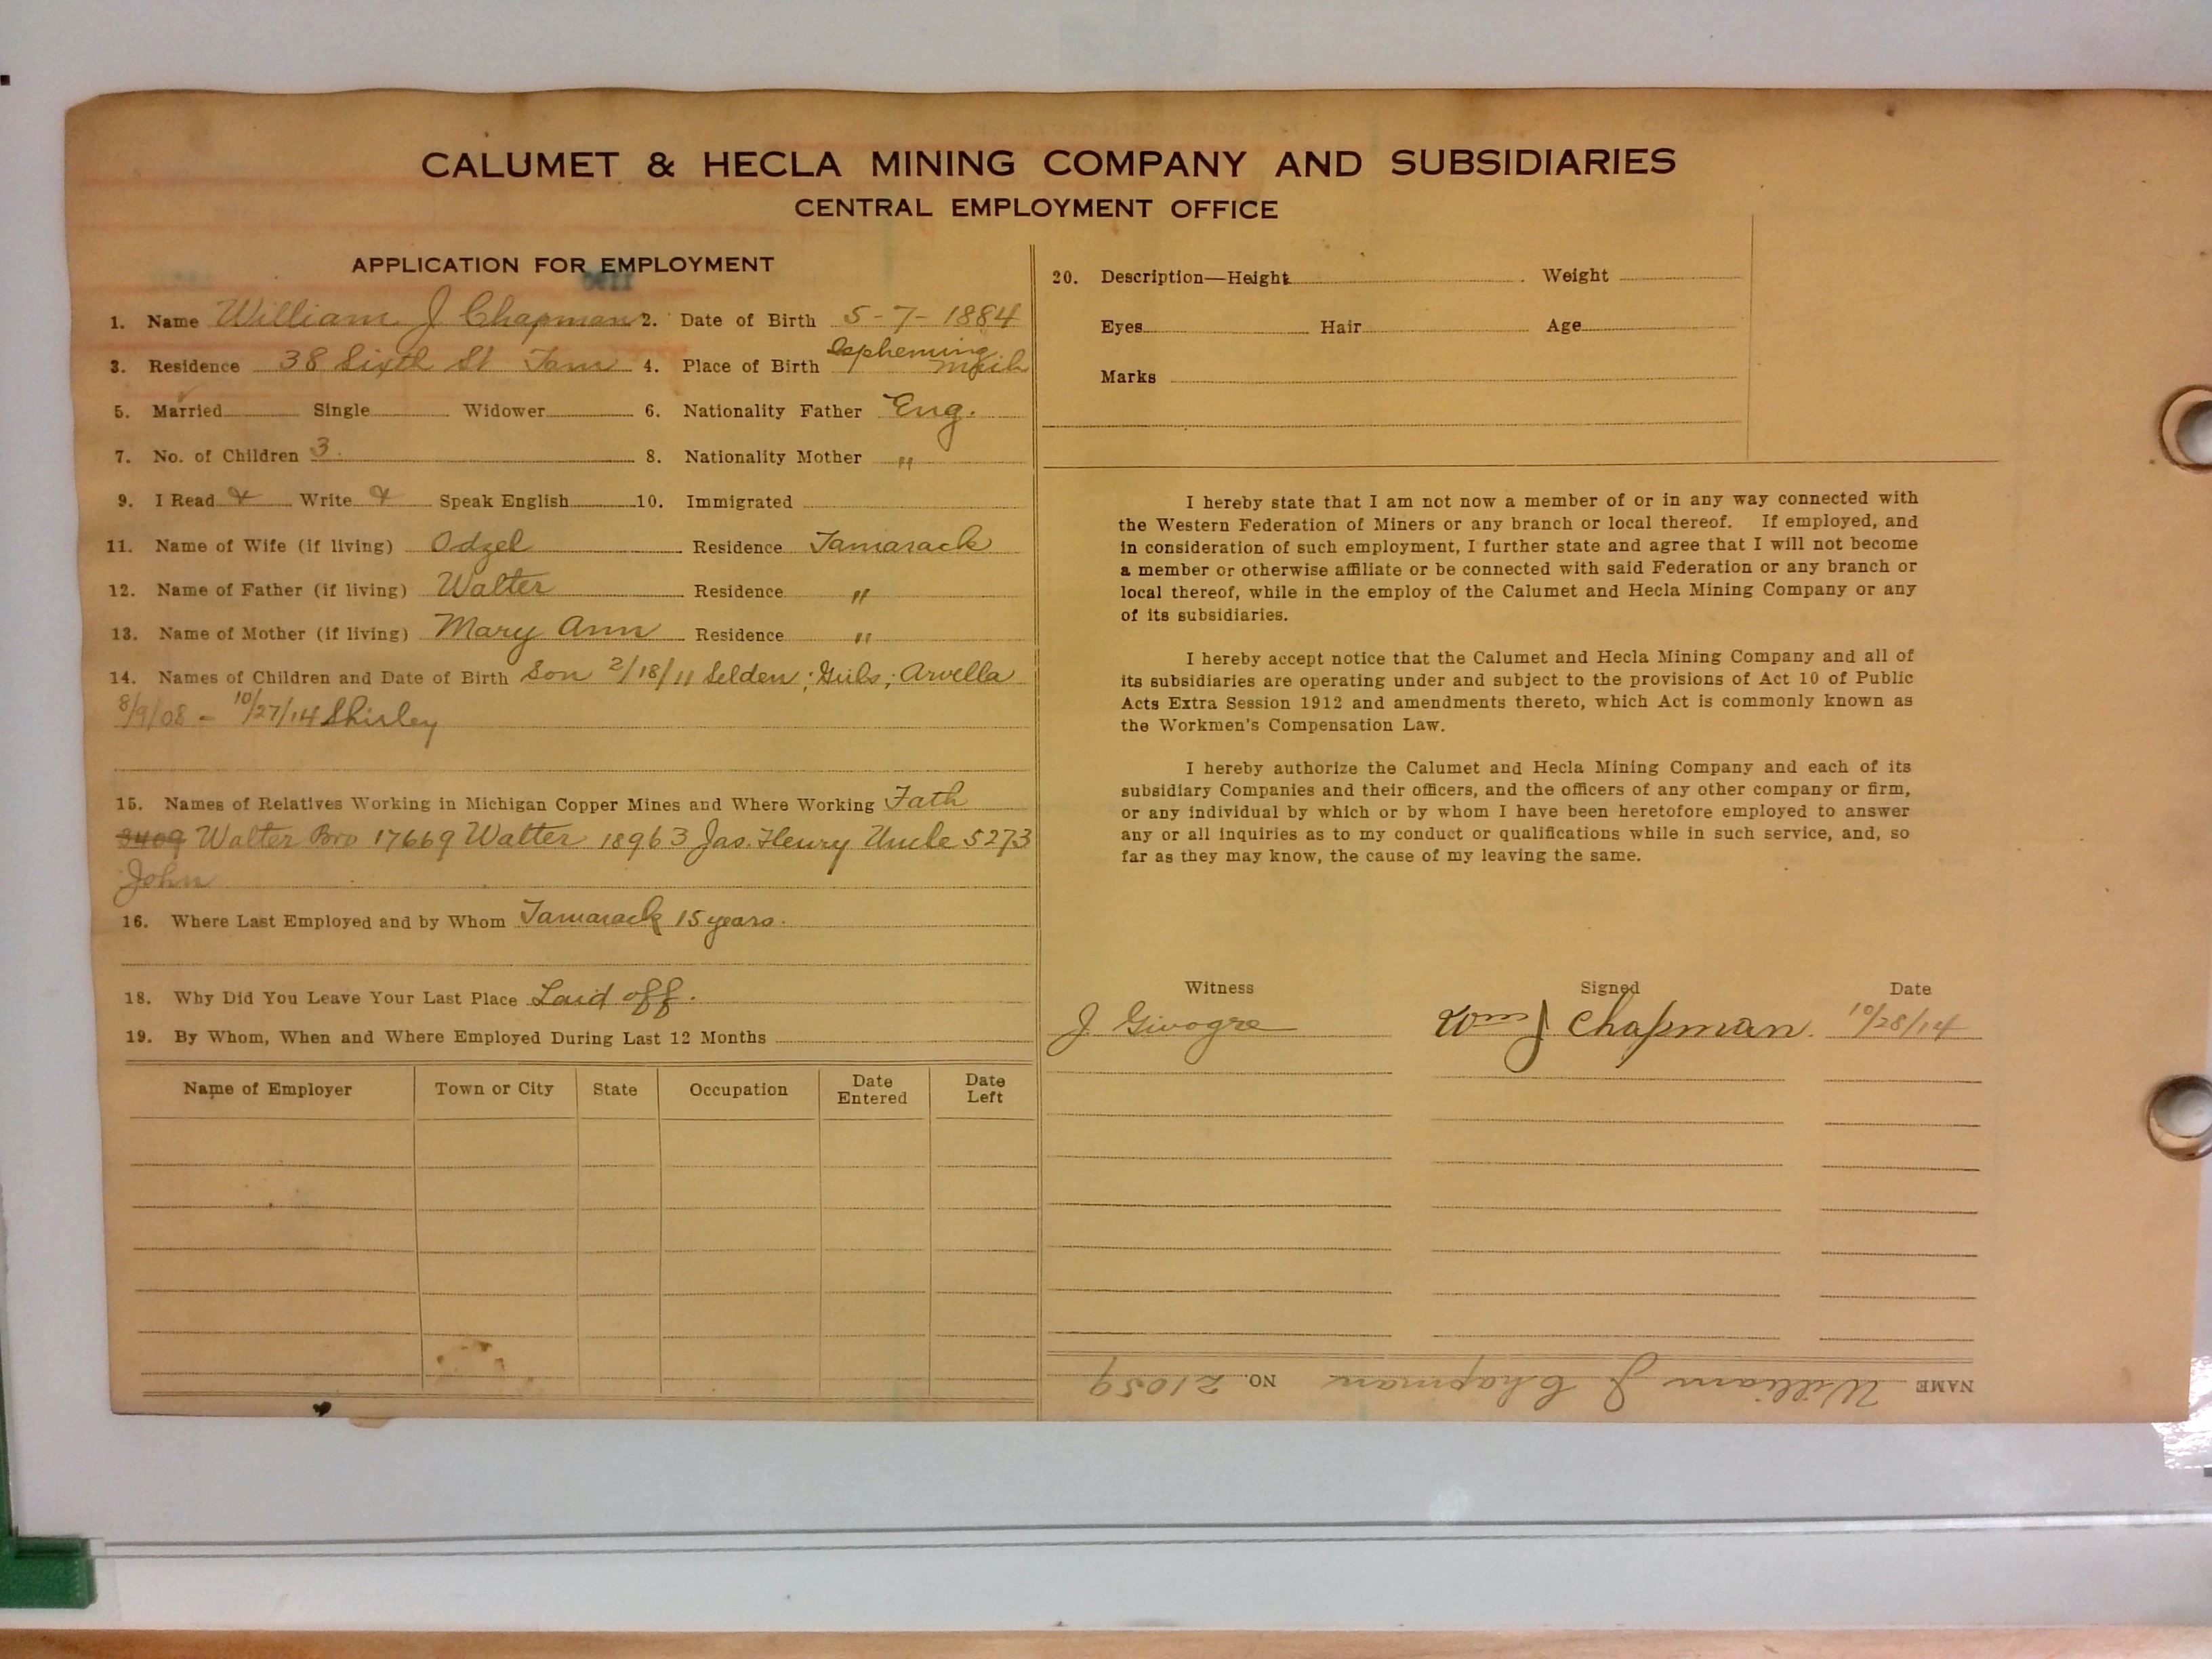 CALUMET & HECLA MINING COMPANY AND SUBSIDIARIES
CENTRAL EMPLOYMENT OFFICE
APPLICATION FOR EMPLOYMENT
1. Name William J Chapman 2. Date of Birth 5-7-1884
3. Residence 38 Sixth St Tam 4. Place of Birth Ispheming Mich
5. Married Single Widower 6. Nationality Father Eng.
7. No. of Children 3. 8. Nationality Mother "
9. I Read Write Speak English 10. Immigrated
11. Name of Wife (if living) Odzel Residence Tamarack
12. Name of Father (if living) Walter Residence "
13. Name of Mother (if living) Mary Ann Residence "
14. Names of Children and Date of Birth Son 2/18/11 Selden; Girls; Arvella
8/9/08 - 10/27/14 Shirley
15. Names of Relatives Working in Michigan Copper Mines and Where Working Fath
3409 Walter Bro 17669 Walter 18963 Jas. Henry Uncle 5273
John
16. Where Last Employed and by Whom Tamarack 15 years.
18. Why Did You Leave Your Last Place Laid off.
19. By Whom, When and Where Employed During Last 12 Months
Name of Employer Town or City State Occupation Date Entered Date Left
20. Description—Height Weight
Eyes Hair Age
Marks
I hereby state that I am not now a member of or in any way connected with
the Western Federation of Miners or any branch or local thereof. If employed, and
in consideration of such employment, I further state and agree that I will not become
a member or otherwise affiliate or be connected with said Federation or any branch or
local thereof, while in the employ of the Calumet and Hecla Mining Company or any
of its subsidiaries.
I hereby accept notice that the Calumet and Hecla Mining Company and all of
its subsidiaries are operating under and subject to the provisions of Act 10 of Public
Acts Extra Session 1912 and amendments thereto, which Act is commonly known as
the Workmen's Compensation Law.
I hereby authorize the Calumet and Hecla Mining Company and each of its
subsidiary Companies and their officers, and the officers of any other company or firm,
or any individual by which or by whom I have been heretofore employed to answer
any or all inquiries as to my conduct or qualifications while in such service, and, so
far as they may know, the cause of my leaving the same.
Witness Signed Date
J. Givogre Wm J Chapman. 10/28/14
NAME William J Chapman NO. 21059